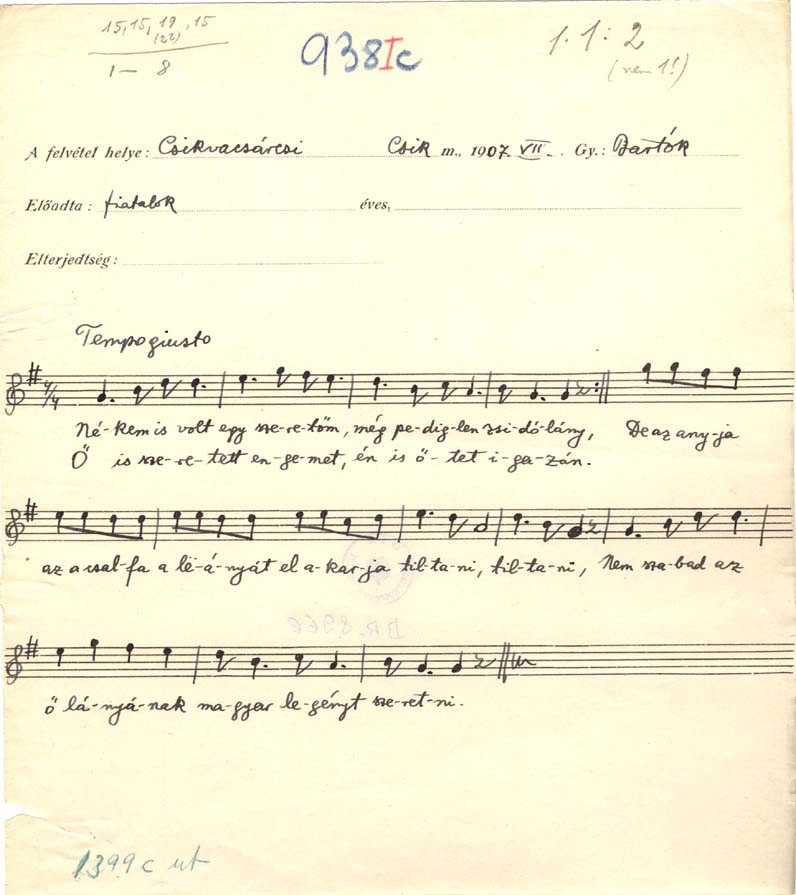 15, 15, 19, 15
(22)
1— 8
938Ic
1. 1: 2
(nem 1!)
A felvétel helye: Csikvacsárcsi Csik m., 1907 VII. Gy.: Bartók
Előadta: fiatalok éves,
Elterjedtség:
Tempo giusto
4/4
Né-kem is volt egy sze-re-tőm, még pe-dig-len zsi-dó-lány, De az any-ja
Ő is sze-re-tett en-ge-met, én is ő-tet i-ga-zán.
az a csal-fa a lé-á-nyát el a-kar-ja til-ta-ni, til-ta-ni, Nem sza-bad az
ő lá-nyá-nak ma-gyar le-gényt sze-ret-ni.
BR 8966
1399c ut